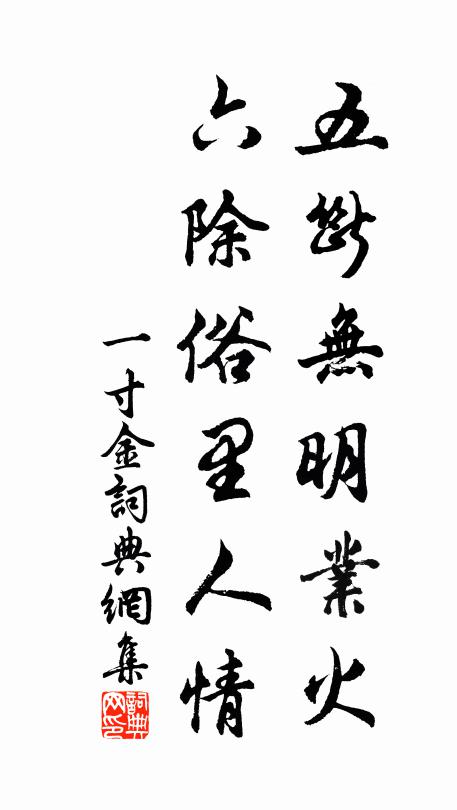 五斷無明業火
六除俗里人情
一寸金詞典網集
詞典網印